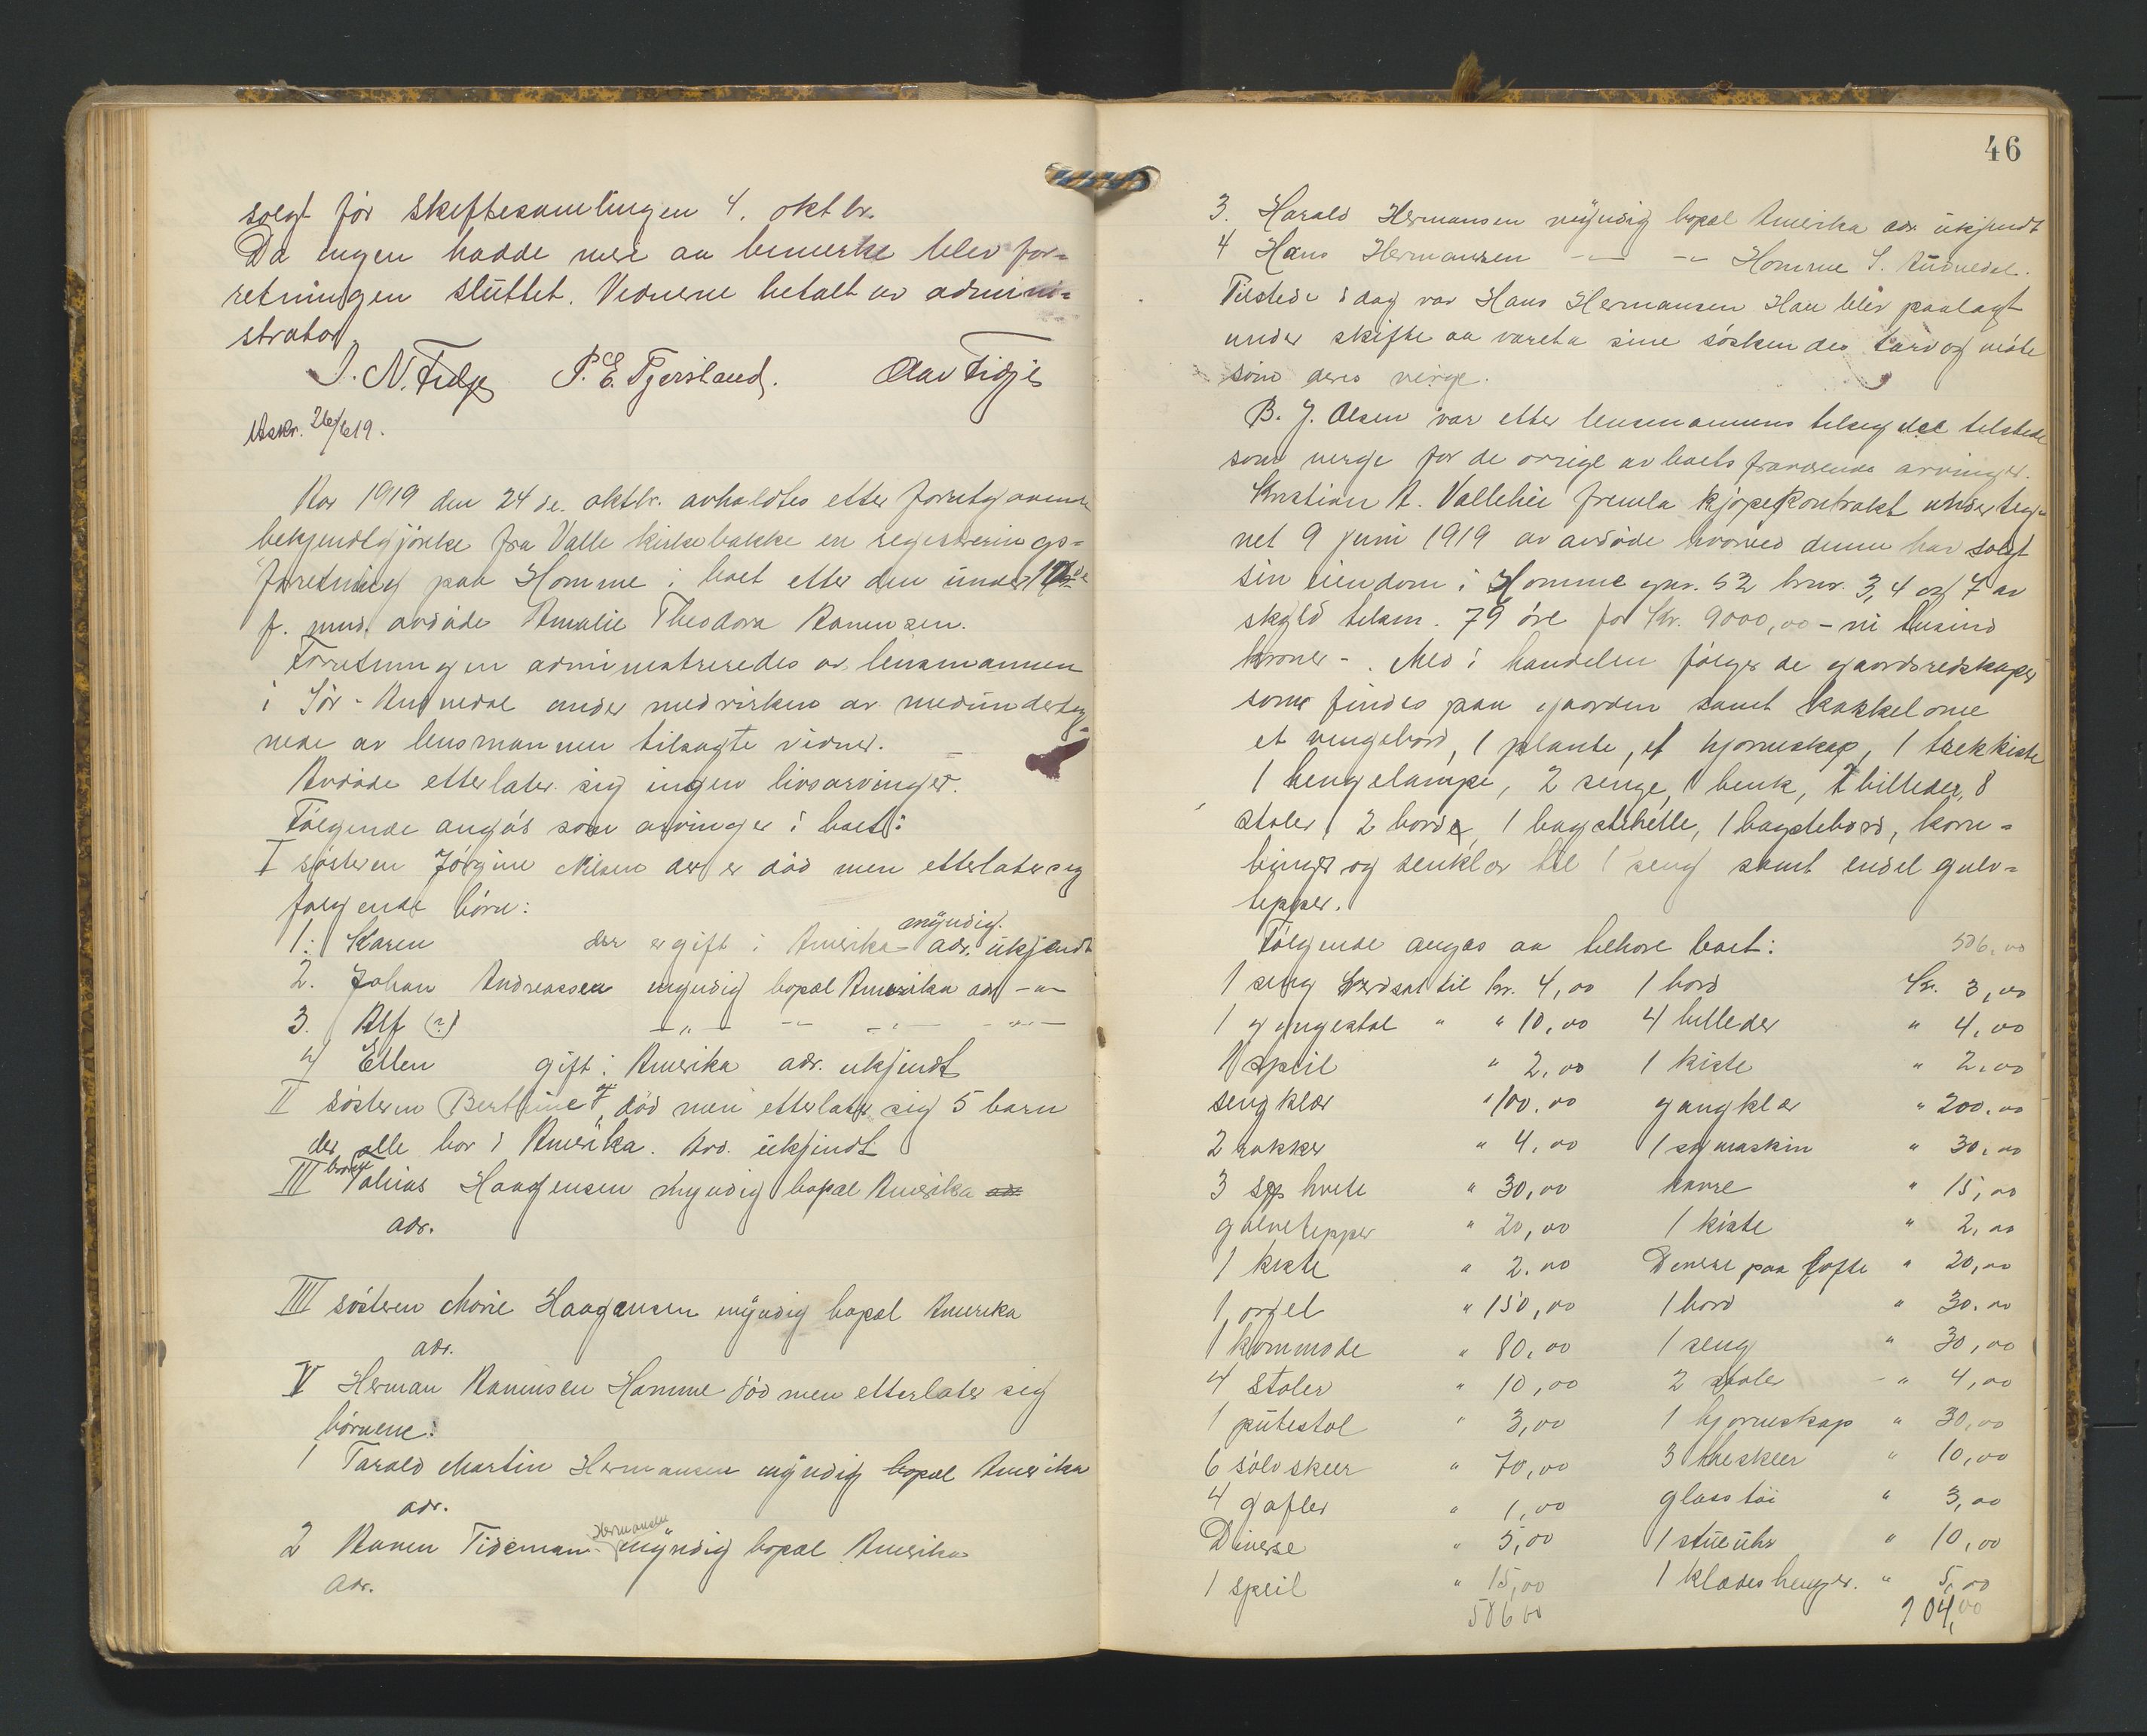 solgt för skiftesamlingen 4. oktbr.
Da ingen hadde mer aa bemerke blev for-
retningen sluttet. Vidnene betalt av admini-
strator.
J. N. Fidje P. E. Tjersland. Aav Fidje
Utskr. 26/6 19.
Aar 1919 den 24de. oktbr. avholdtes etter forutgaaende
bekjendtgjörelse fra Valle kirkebakke en registrerings-
forretning paa Homme i boet etter den under
f. mnd. avdöde Amalie Theodora Aanensen.
Forretningen administreredes av lensmannen
i Sör-Audnedal under medvirken av medunderteg-
nede av lensmannen tilsagte vidner.
Avdöde etterlater sig ingen livsarvinger.
Fölgende angis som arvinger i boet:
I sösteren Jörgine Nilsen der er död men etterlater sig
fölgende börn:
myndig.
1. Karen der er gift i Amerika adr. ukjendt
2. Johan Andreassen myndig bopæl Amerika adr -"-
3. Alf (?) -"- -"- -"- -"-
4 Ellen gift i Amerika adr. ukjendt
II sösteren Berthine, död men etterlater sig 5 barn
der alle bor i Amerika. Adr. ukjendt
III Tobias Haagensen myndig bopæl Amerika adr.
adr.
III sösteren Marie Haagensen myndig bopæl Amerika
adr.
V Herman Aanensen Homme död men etterlater sig
börnene:
1 Tarald Martin Hermansen myndig bopæl Amerika
adr.
2 Aanen Tideman Hermansen myndig bopæl Amerika
adr.
46
3. Harald Hermansen myndig bopæl Amerika adr. ukjendt
4 Hans Hermansen -"- -"- Homme S. Audnedal.
Tilstede idag var Hans Hermansen Han blev paalagt
under skifte aa vareta sine söskendes tarv og möte
som deres verge.
B. J. Olsen var etter lensmannens tilsigelse tilstede
som verge for de övrige av boets fraværende arvinger.
Kristian A. Vallehei fremla kjöpekontrakt underteg-
net 9 juni 1919 av avdöde hvorved denne har solgt
sin eiendom i Homme gnr. 52 brnr. 3, 4 og 7 av
skyld tilsm. 79 öre for Kr. 9000,00 - ni tusind
kroner -. Med i handelen fölger de gaardsredskaper
som findes paa gaarden samt kakkelovne
et vengebord, 1 plante, et hjörneskap, 1 trekkiste
1 hengelampe, 2 senge, 1 benk, 7 billeder, 8
stoler, 2 bord, 1 bagstehelle, 1 bagstebord, korn-
binger og senklær til 1 seng samt endel gulv-
tepper.
Fölgende angaes aa tilhöre boet: 586,00
1 seng verdsat til kr. 4,00 1 bord Kr. 3,00
1 gyngestol " " 10,00 4 billeder " 4,00
1 speil " 2,00 1 kiste " 2,00
sengklær " 100,00 gangklær " 200,00
2 rokker " 4,00 1 symaskin " 30,00
3 hvete " 30,00 havre " 15,00
gulvtepper " 20,00 1 kiste " 2,00
1 kiste " 2,00 Diverse paa lofte " 20,00
1 orgel " 150,00 1 bord " 30,00
1 kommode " 80,00 1 seng " 30,00
4 stoler " 10,00 2 stoler " 4,00
1 putestol " 3,00 1 hjörneskap " 30,00
6 sölvskeer " 70,00 3 theskeer " 10,00
4 gafler " 1,00 glasstöi " 3,00
Diverse " 5,00 1 stueuhr " 10,00
1 speil " 15,00 1 klædeshenger. " 5,00
586 00 904,00